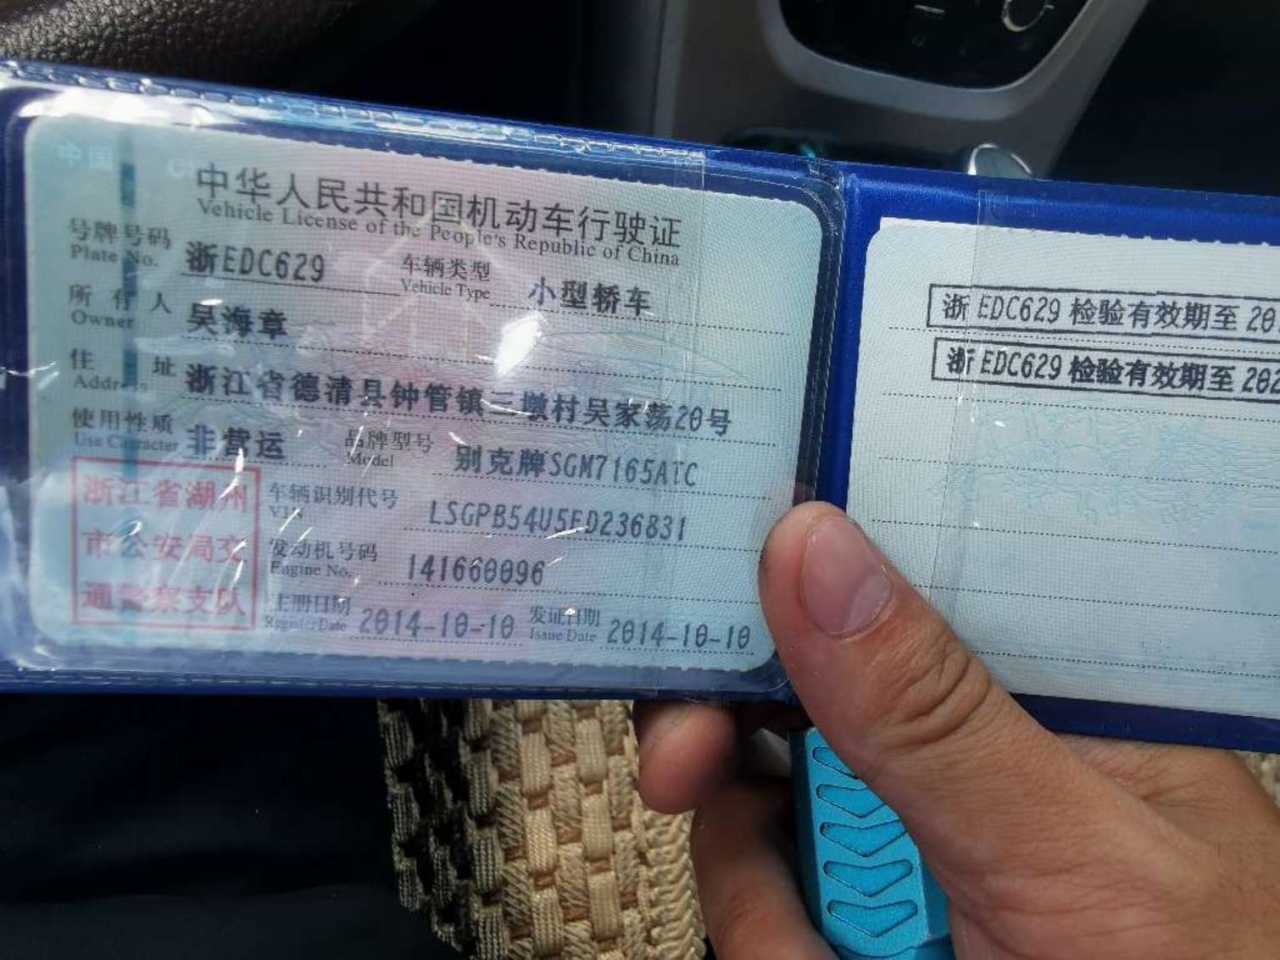 中国
中华人民共和国机动车行驶证
Vehicle License of the People's Republic of China
号牌号码 浙EDC629 车辆类型 小型轿车
Plate No. Vehicle Type
所有人 吴海章
Owner
住址 浙江省德清县钟管镇三墩村吴家荡20号
Address
使用性质 非营运 品牌型号 别克牌SGM7165ATC
Use Character Model
浙江省湖州 车辆识别代号 LSGPB54U5ED236831
VIN
市公安局交 发动机号码 141660096
Engine No.
通警察支队 注册日期 2014-10-10 发证日期 2014-10-10
Register Date Issue Date
浙EDC629 检验有效期至20
浙EDC629 检验有效期至202